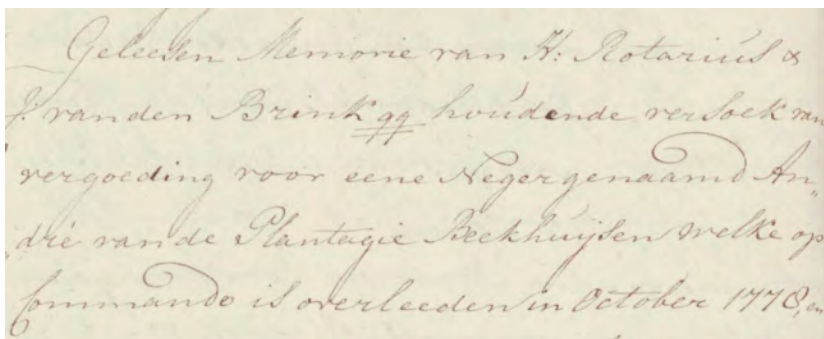 Geleesen Memorie van H: Rotarius &
J. van den Brink qq houdende versoek van
vergoeding voor eene Neger genaamd An„
„drie van de Plantagie Beekhuijsen welke op
Commando is overleeden in October 1778, en